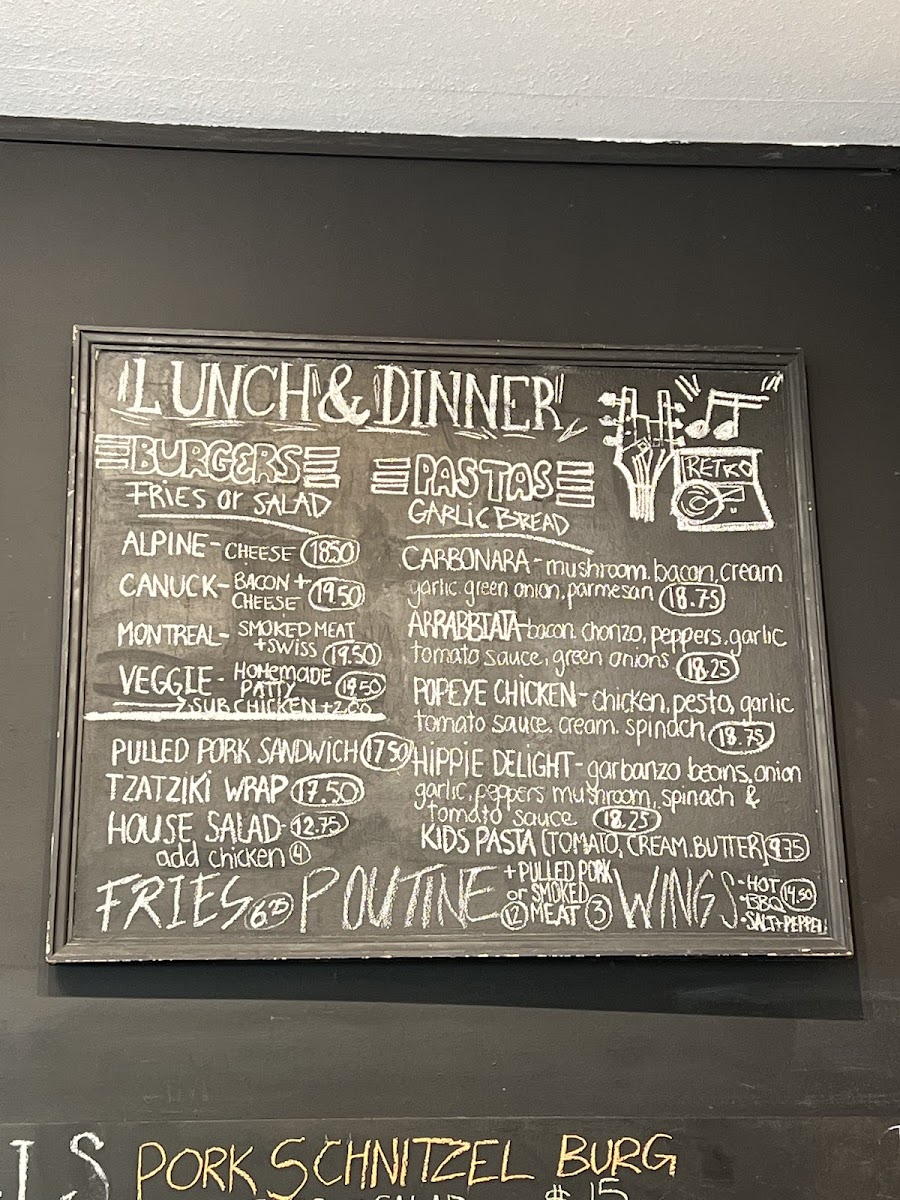 LUNCH & DINNER
BURGERS
FRIES or SALAD
ALPINE - CHEESE 18.50
CANUCK - BACON +
CHEESE 19.50
MONTREAL - SMOKED MEAT
+ SWISS 19.50
VEGGIE - HOMEMADE
PATTY 19.50
SUB CHICKEN + 2.00
PULLED PORK SANDWICH 17.50
TZATZIKI WRAP 17.50
HOUSE SALAD 12.75
add chicken 4
PASTAS
GARLIC BREAD
CARBONARA - mushroom, bacon, cream
garlic, green onion, parmesan 18.75
ARRABBIATA - bacon, chorizo, peppers, garlic
tomato sauce, green onions 18.25
POPEYE CHICKEN - chicken, pesto, garlic
tomato sauce, cream, spinach 18.75
HIPPIE DELIGHT - garbanzo beans, onion
garlic, peppers mushroom, spinach &
tomato sauce 18.25
KIDS PASTA (TOMATO, CREAM, BUTTER) 9.75
RETRO
FRIES 6.25
POUTINE 12
+ PULLED PORK
or SMOKED
MEAT 3
WINGS 14.50
- HOT
- BBQ
- SALT + PEPPER
LS PORK SCHNITZEL BURG
SALAD $15